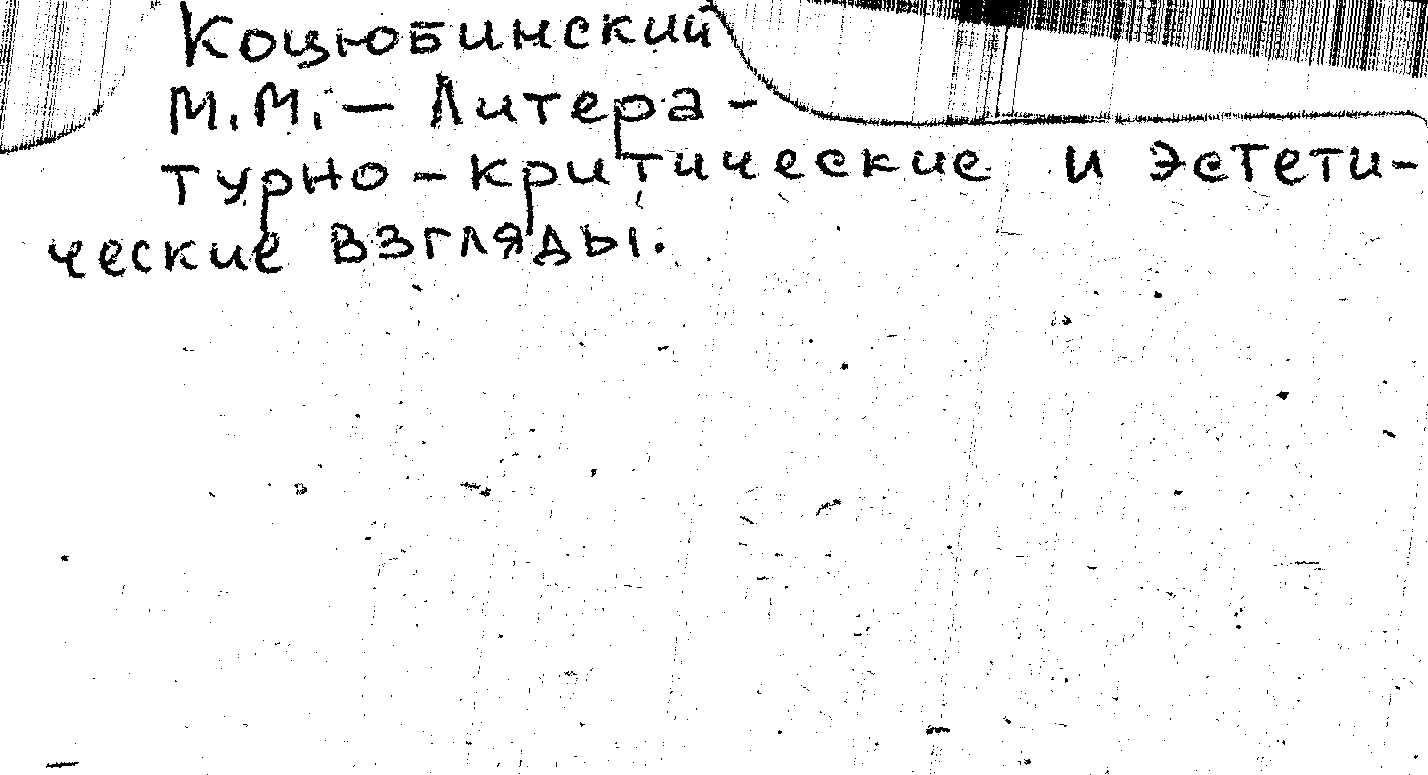 Коцюбинский
М.М. — Литера-
турно-критические и эстети-
ческие взгляды.